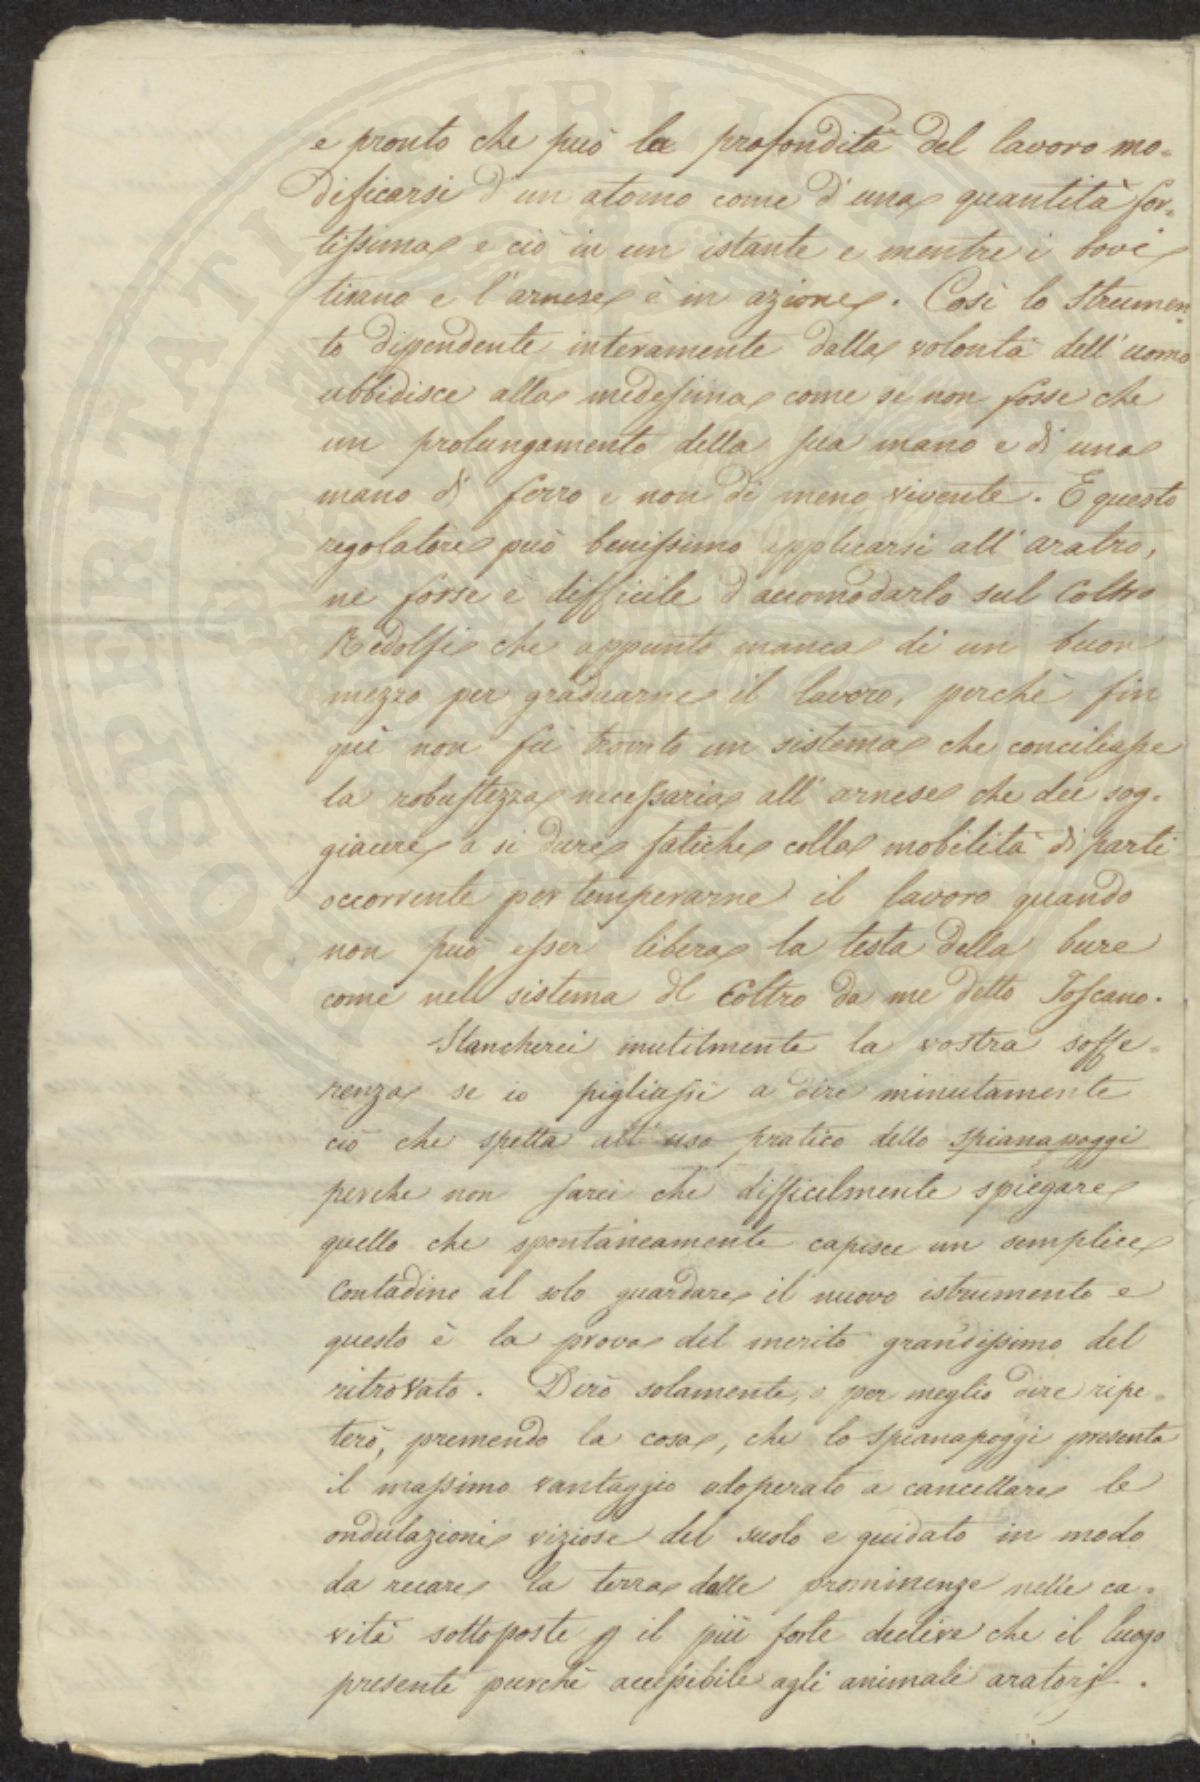 e pronto che può la profondità del lavoro mo=
dificarsi d'un atomo come d'una quantità for=
tissima e ciò in un istante e mentre i bovi
tirano e l'arnese è in azione. Così lo strumen=
to dipendente interamente dalla volontà dell'uomo
ubbidisce alla medesima come se non fosse che
un prolungamento della sua mano e di una
mano di ferro e non di meno vivente. E questo
regolatore può benissimo applicarsi all'aratro,
ne forse è difficile d'accomodarlo sul Coltro
Ridolfi che appunto manca di un buon
mezzo per graduarne il lavoro, perchè fin
quì non fù trovato un sistema che conciliasse
la robustezza necessaria all'arnese che dee sog=
giacere a si dure fatiche colla mobilità di parti
occorrente per temperarne il lavoro quando
non può esser libera la testa della bure
come nel sistema del Coltro da me detto Toscano.
Stancherei inutilmente la vostra soffe=
renza se io pigliassi a dire minutamente
ciò che spetta all'uso pratico dello spianapoggi
perche non farei che difficilmente spiegare
quello che spontaneamente capisce un semplice
Contadino al solo guardare il nuovo istrumento e
questo è la prova del merito grandissimo del
ritrovato. Dirò solamente, o per meglio dire ripe=
terò, premendo la cosa, che lo spianapoggi presenta
il massimo vantaggio adoperato a cancellare le
ondulazioni viziose del suolo e guidato in modo
da recare la terra dalle prominenze nelle ca=
vità sottoposte p il più forte declive che il luogo
presente purchè accessibile agli animali aratorj.